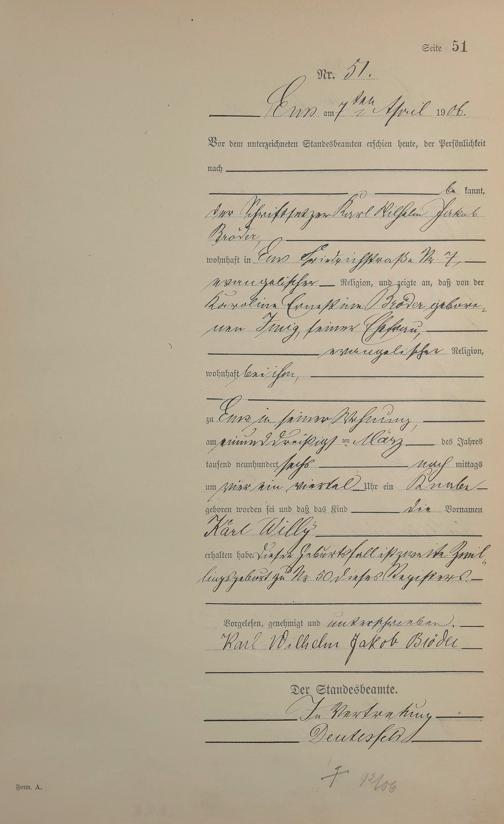 Seite 51
Nr. 51.
Ems am 7ten April 1906.
Vor dem unterzeichneten Standesbeamten erschien heute, der Persönlichkeit
nach
be kannt,
der Schriftsetzer Karl Wilhelm Jakob
Bröder,
wohnhaft in Ems Friedrichstraße Nr 7,
evangelischer Religion, und zeigte an, daß von der
Karoline Ernestine Bröder gebore-
nen Imig, seiner Ehefrau,
evangelischer Religion,
wohnhaft bei ihm,
zu Ems in seiner Wohnung,
am einunddreißigsten März des Jahres
tausend neunhundert sechs nach mittags
um vier ein viertel Uhr ein Knabe
geboren worden sei und daß das Kind die Vornamen
Karl Willy
erhalten habe. Dieser Geburtsfall ist zweite Zwil-
lingsgeburt zu Nr 50 dieses Registers.
Vorgelesen, genehmigt und unterschrieben.
Karl Wilhelm Jakob Bröder
Der Standesbeamte.
In Vertretung
† 12/06
Form. A.